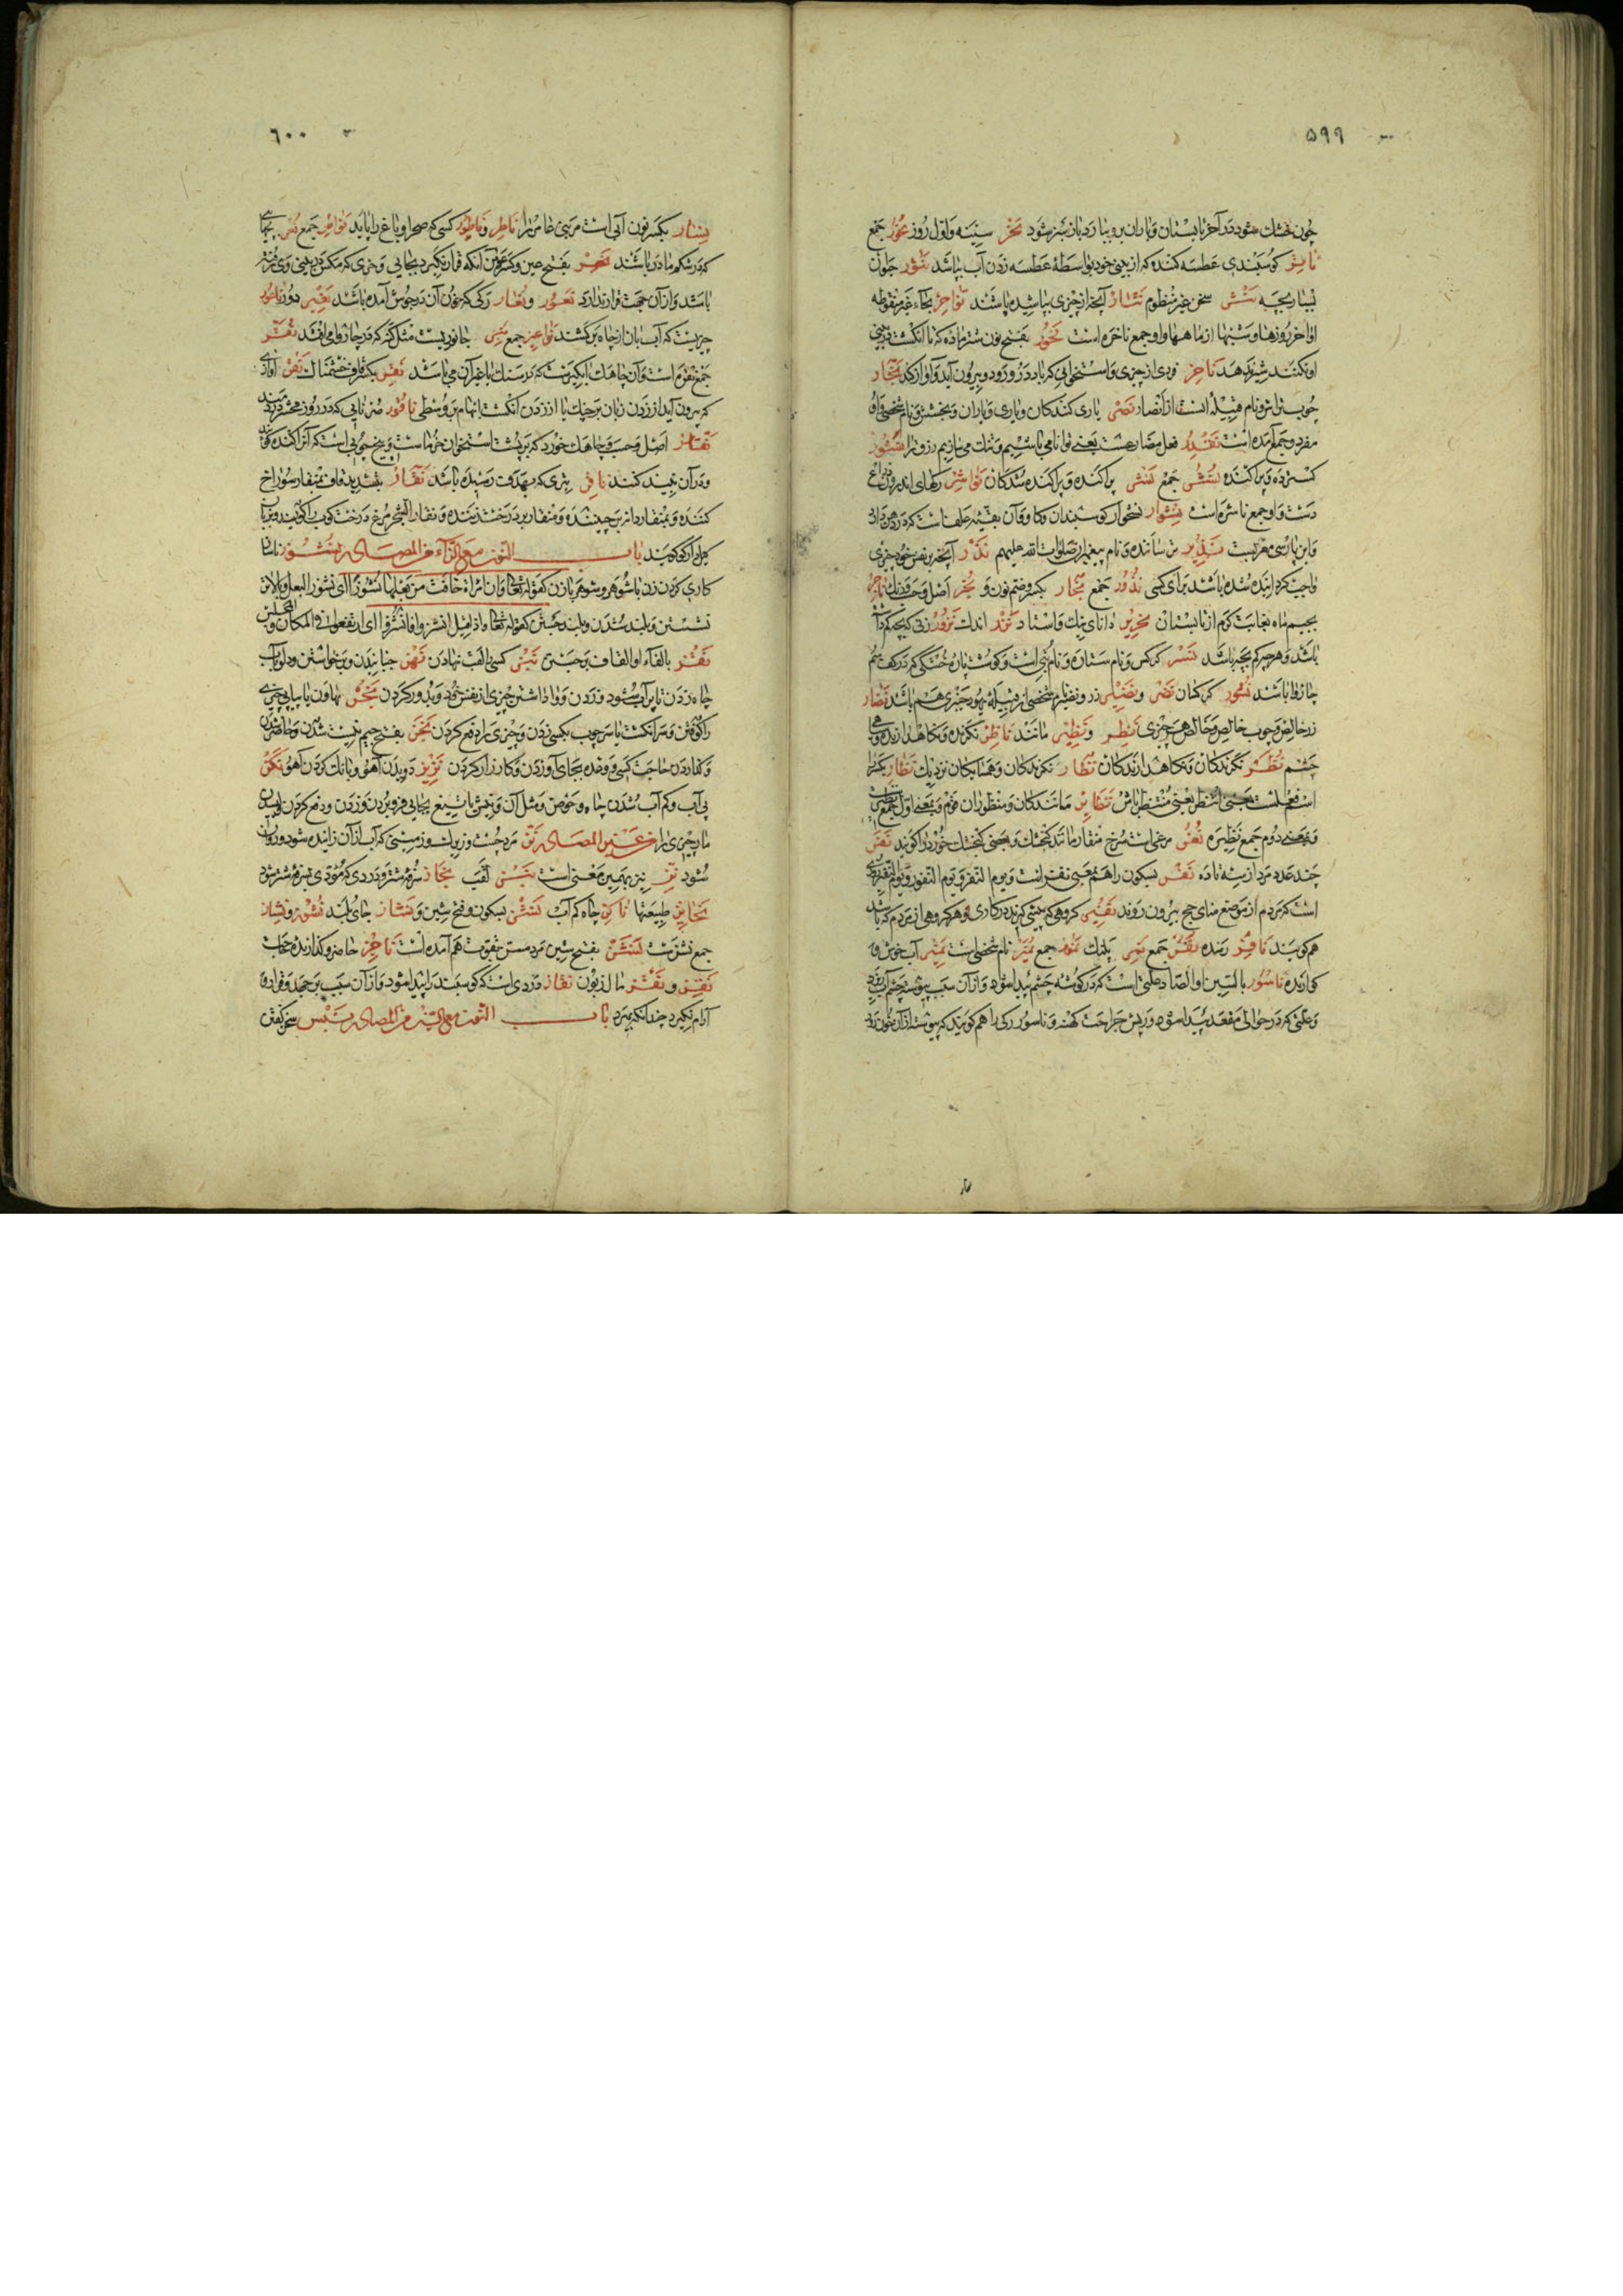 ۵۹۹
چون خشك شود در آخر تابستان و باران برو ببارد باز سبز شود نحر سینه و اول روز نحور جمع
ناثر گوسبندی عطسه کننده که از بینی خود بواسطهٔ عطسه زدن آب بپاشد نثور جوان
بسیار بچه نثر سخن غیر منظوم نثار آنچه از چیزی بپاشیده باشند نواحر بحاء غیر منقوطه
اواخر روزها و شبها از ماهها و او جمع ناحره است نخور بفتح نون شتر ماده که تا انگشت در بینی
او نکنند شیر ندهد ناخر
چوب تراش و نام قبیله است از انصار نصر یاری کنندکان و یاری و باران و بخشش و نام شخصی و او
مفرد و جمع آمده است نقدر فعل مضارعست یعنی توانا می باشیم و تنك می سازیم رزق را منشور
کسترده و پراکنده نشر جمع نشر پراکنده و پراکنده شدکان نواشر رکهای اندرون ذراع
دست و او جمع ناشره است نشوار نشخوار کوسبندان و کاو و آن بقیهٔ علف است که در دهن دارند
و این پارسی معربست نذیر ترساننده و نام پیغمبران صلوات الله علیهم نذر آنچه بر نفس خود چیزی
واجب کردانیده شده باشد برای کسی نذور جمع نجار بکسر و ضم نون و نجر اصل و حسب و رنك ناجر
بجیم ماه بغایت کرم از تابستان نحریر دانای نیك و استاد نزر اندك نزور زنی که بچه کم دارد
باشد و هر چیز که کم بچه باشد نسر کرکس و نام ستاره و نام بتی است و کوشت پارهٔ خشکی که در کف سم
چاروا باشد نسور کرکسان نضر و نضیر زر و نضیر نام شخصی از قبیلهٔ یهود خیبری هم باشد نضار
زر خالص و چوب خالص و خالص هر چیزی نظر و نظیر مانند ناظر نکرنده و نکاهدارنده و سیاهی
چشم نظر نکرندکان و نکاهدارندکان نظار نکرندکان و همسایکان نزدیك نظار بکسر را
اسم فعلست بمعنی انتظر یعنی منتظر باش نظایر مانندکان و منظوران قوم و بمعنی اول جمع نظیر است
و بمعنی دوم جمع نظیره نغر مرغی است سرخ منقار مانند کنجشك و بعضی کنجشك خورد را کویند نفر
چند عدد مرد از سه تا ده نفر بسکون را هم بمعنی نفر است و یوم النفر و یوم النفور و یوم النفیر روزی
است که مردم از موضع منای حج بیرون روند نفیر کروهی که پیشی کیرند در کاری و هر کروهی از مردم که باشد
هم کویند نافر رمنده نفر جمع نمر پلنك نمور جمع نمیر نام شخصی است نمیر آب خوش و
کوارنده ناسور بالسین او الصاد علتی است که در کوشه چشم پیدا شود و از آن سبب پیوسته چشم آب ریزد
و علتی که در حوالی مقعد پیدا شود و ریش جراحت کهنه و ناسور رکی را هم کویند که پیوسته از آن خون رود
۶۰۰
بکسر نون آبی است مر بنی عامر را ناطر و ناطور کسی که صحرا و باغ را پاید نواطر جمع نعر بچهای
که در شکم مادر باشند نعر بفتح عین و کسر عین آنکه قرار نکیرد بجایی و خری که مکس در بینی وی رفته
باشد و از آن جهت قرار ندارد نعور و نعار رکی که خون آن در جوش آمده باشد نعیر دور ناعور
چیزیست که آب بآن از چاه برکشند نواعیر جمع نعر جانوریست مثل کنه که در چاروا می افتد نقر
جمع نقره است و آن چاهك آبکیرست که در سنك یا غیر آن می باشد نقر بکسر قاف خشمناك نقر آواز
که بیرون آید از زدن زبان بر چنك یا از زدن انکشت ابهام بر وسطی ناقور صرنایی که در روز محشر دمند
نقار اصل و حسب و چاهك خورد که بر پشت استخوان خرماست و بیخ چوبی است که آنرا کنده
و در آن نبیذ کنند ناقر تیری که بهدف رسیده باشد نقار بتشدید قاف بمنقار سوراخ
کننده و بمنقار دانه بر چیننده و منقار بر درخت زننده و نقار الشجر مرغ درخت کوب را کویند و بترکی
آغاج دلن کویند باب النون مع الزاء من المصادر نشوز ناساز
کاری کردن زن با شوهر و شوهر با زن کقوله تعالی و ان امراة خافت من بعلها نشوزا ای نشوز البعل و بالا
نشستن و بلند شدن و بلند جستن کقوله تعالی و اذا قیل انشزوا فانشزوا ای ارتفعوا فی المکان و المجلس
نفز بالفاء او القاف بر جستن نبز کسی را لقب نهادن نهز جنبانیدن و برخواستن و دلو در آب
چاه زدن تا پر آب شود و زدن و واداشتن چیزی از نفس خود و بدور کردن نحز بهاون یا بپای چیزی
را کوفتن و سر انکشت یا سر چوب بکسی زدن و چیزی را دفع کردن نجز بفتح جیم نیست شدن و حاضر شدن
و کذاردن حاجت کسی و وعده بجای آوردن و کارزار کردن نزیز دویدن آهو و بانك کردن آهو نکز
بی آب و کم آب شدن چاه و حوض و مثل آن و نیش یا تیغ بجایی فرو بردن و زدن و دفع کردن و کزیدن
مار چیزی را من غیر المصادر نز مرد چست و زیرك و زمینی که آب از آن زاینده شود و روان
شود نز نیز بهمین معنی است نبز لقب نحاز سرفهٔ شتر و دردی که مودی بسرفهٔ شتر شود
نحایز طبیعتها ناکز چاه کم آب نشز بسکون و فتح شین و نشاز جای بلند نشوز و نشاز
جمع نشزست نشز بفتح شین مرد مسن بقوت هم آمده است ناجز حاضر و کذارندهٔ حاجت
نقز و نقز مال زبون نقاز دردی است که کوسبند را پیدا شود و از آن سبب بر جهد و قرار و
آرام نکیرد چندانکه بمیرد باب النون مع السین من المصادر نبس سخن کفتن